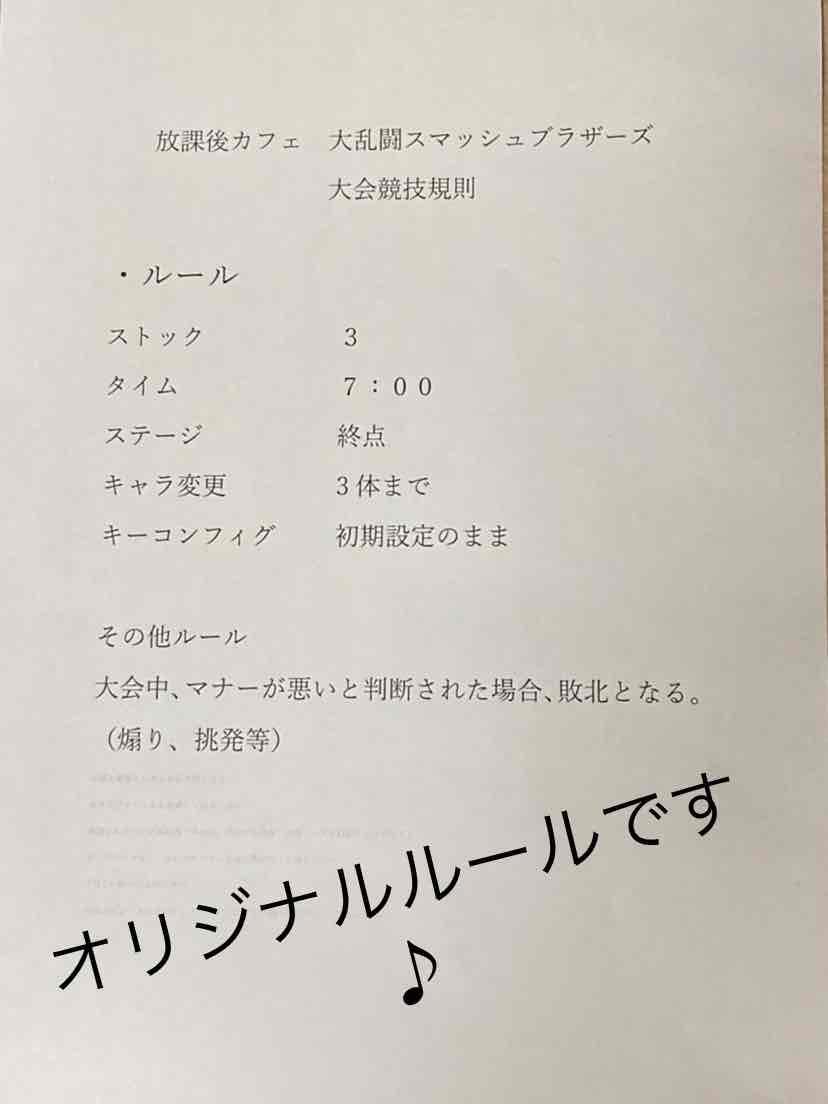 放課後カフェ　大乱闘スマッシュブラザーズ
大会競技規則
・ルール
ストック　3
タイム　７：００
ステージ　終点
キャラ変更　3体まで
キーコンフィグ　初期設定のまま
その他ルール
大会中、マナーが悪いと判断された場合、敗北となる。
（煽り、挑発等）
オリジナルルールです
♪